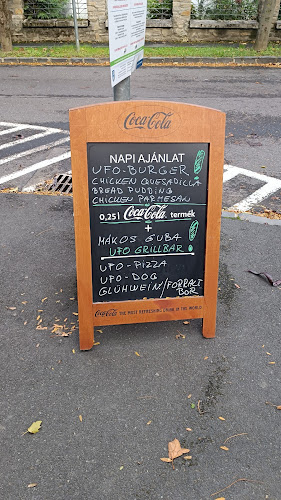 Coca-Cola
NAPI AJÁNLAT
UFO-BURGER
CHICKEN QUESADILLA
BREAD PUDDING
CHICKEN PARMESAN
0,25l Coca-Cola termék
+
MÁKOS GUBA
UFO GRILLBÁR
UFO-PIZZA
UFO-DOG
GLÜHWEIN/FORRALT
BOR
Coca-Cola THE MOST REFRESHING DRINK IN THE WORLD